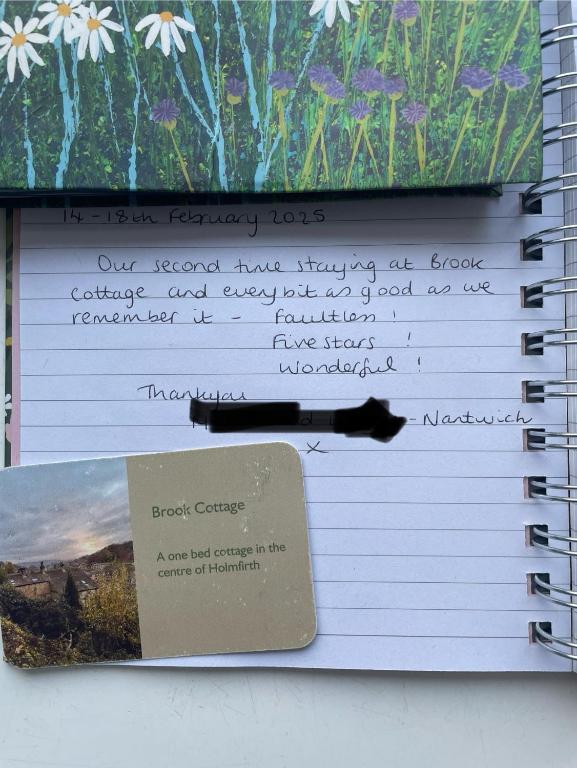 14-18th February 2025
Our second time staying at Brook
cottage and every bit as good as we
remember it - Faultless!
Five stars !
Wonderful !
Thankyou
- Nantwich
x
Brook Cottage
A one bed cottage in the
centre of Holmfirth